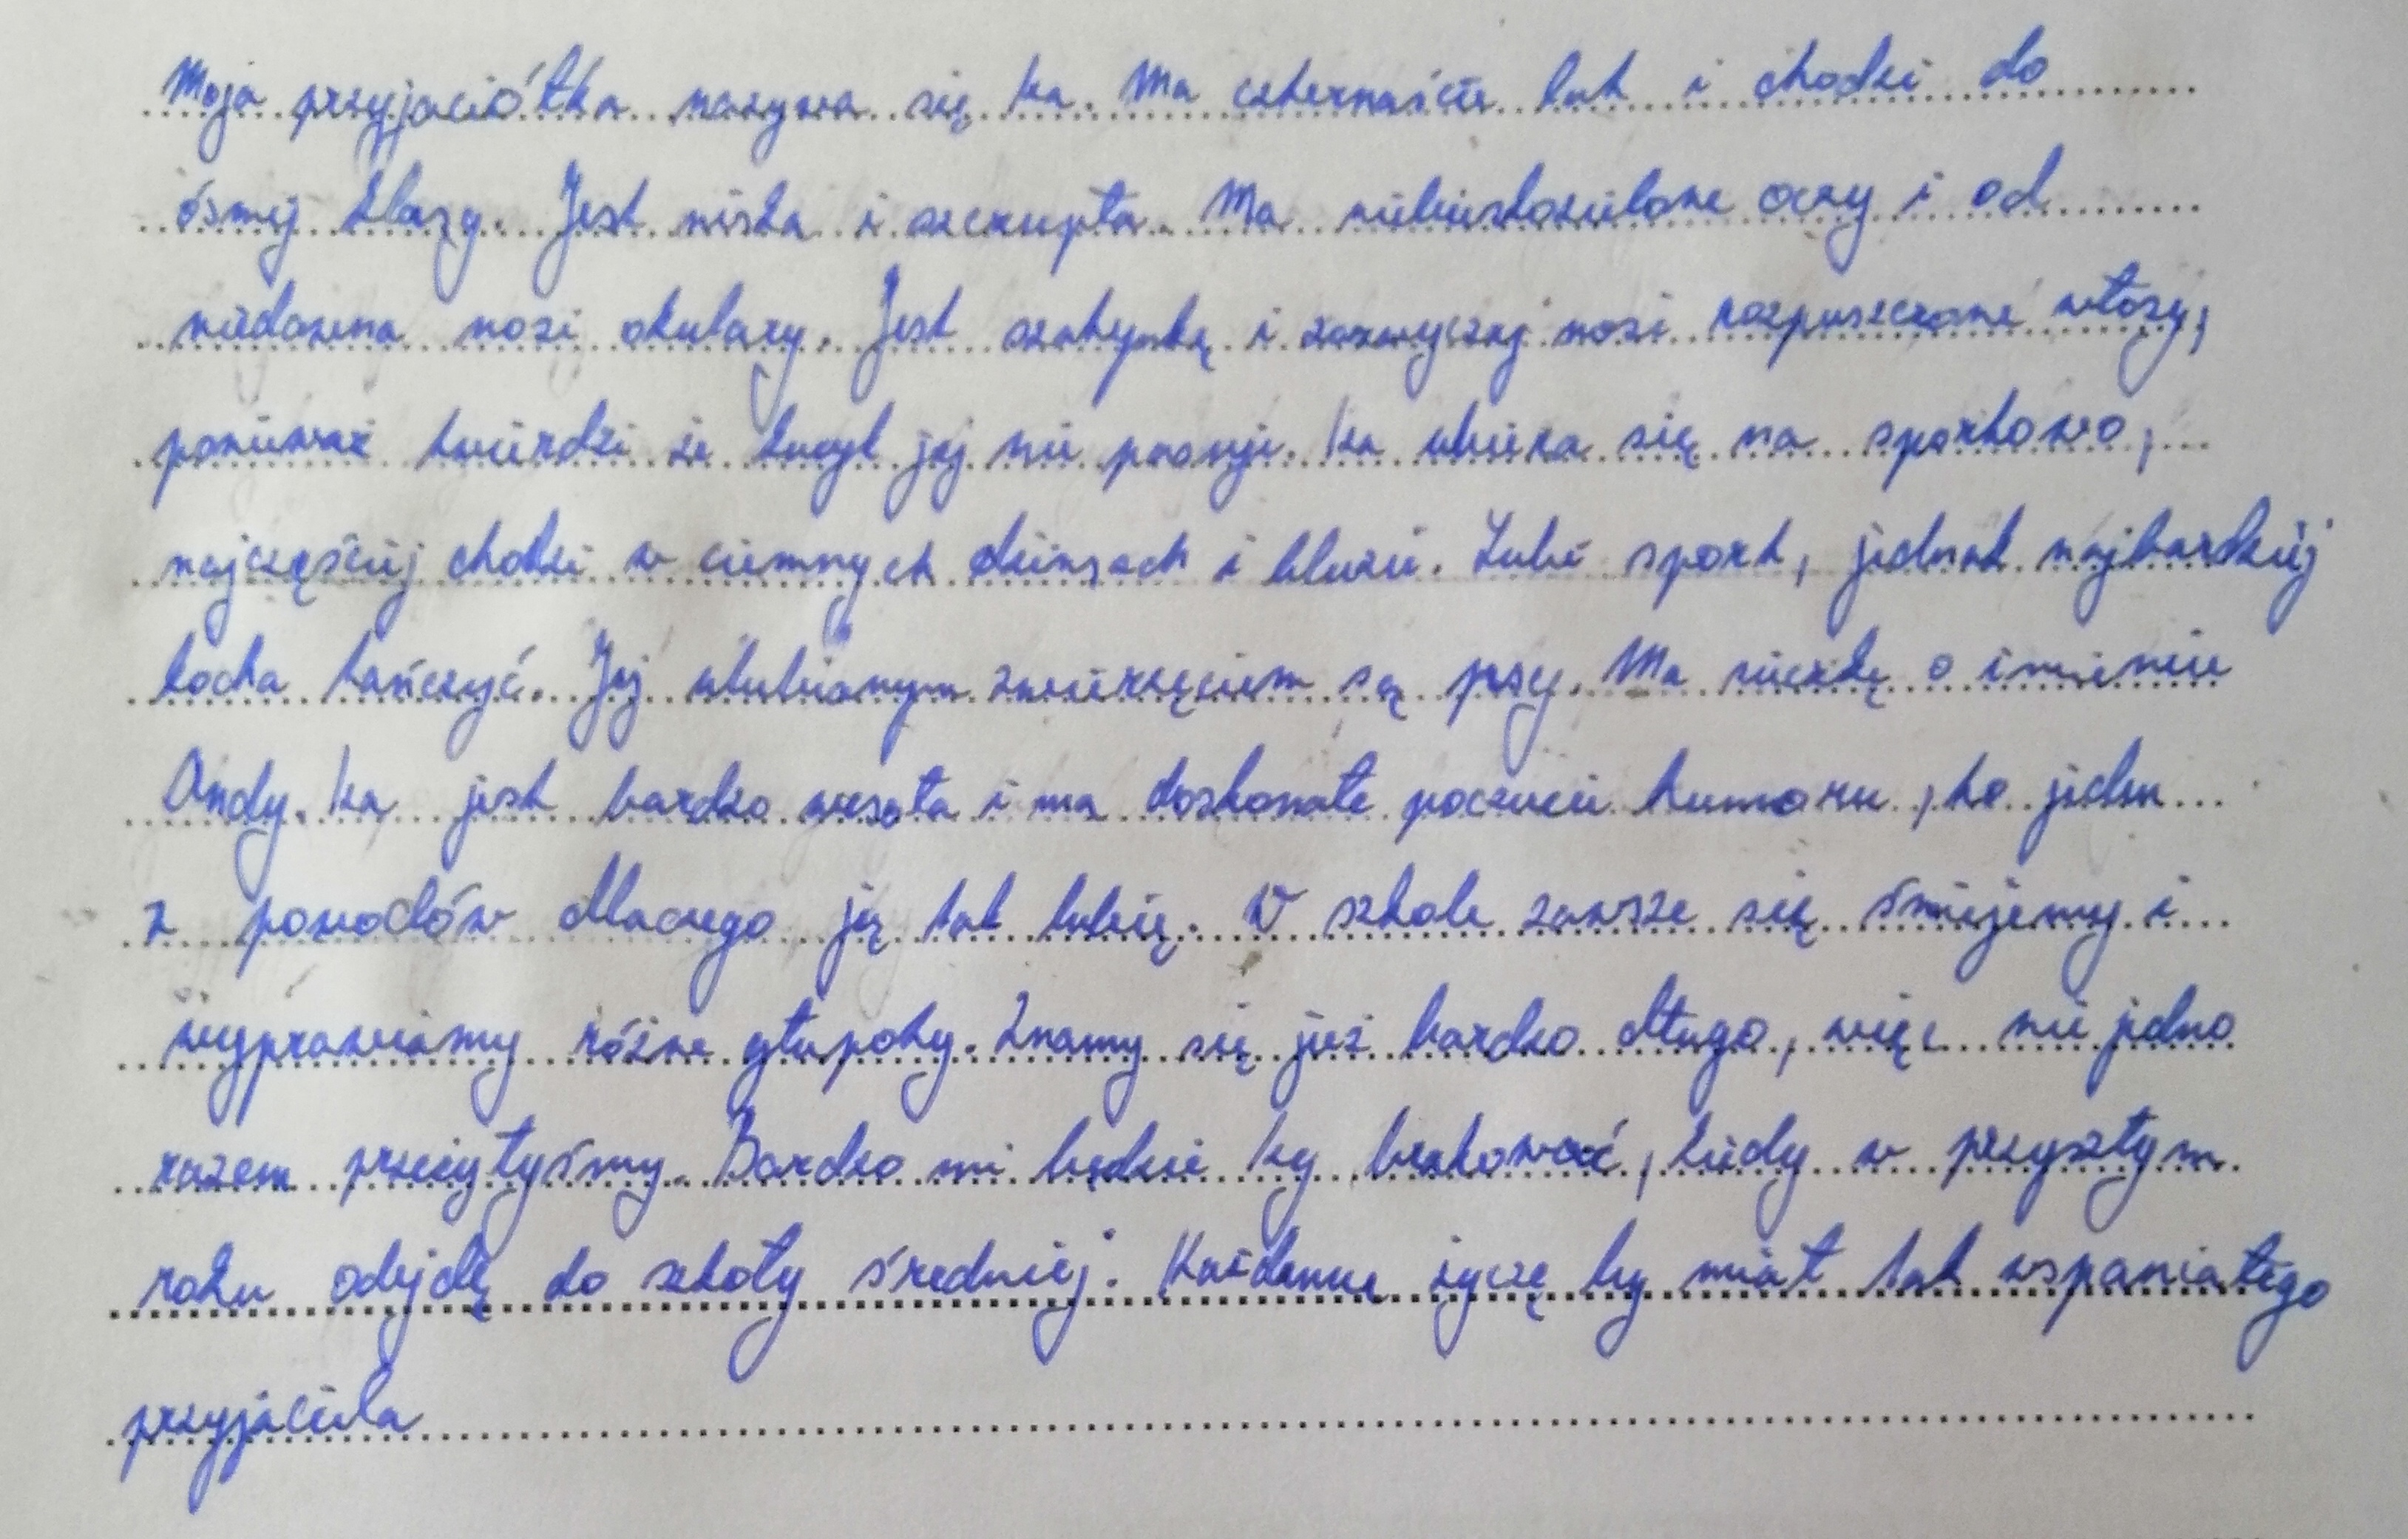 Moja przyjaciółka nazywa się Iza. Ma czternaście lat i chodzi do
ósmej klasy. Jest niska i szczupła. Ma niebieskozielone oczy i od
niedawna nosi okulary. Jest szatynką i zazwyczaj nosi rozpuszczone włosy,
ponieważ twierdzi że kucyk jej nie pasuje. Iza ubiera się na sportowo,
najczęściej chodzi w ciemnych dżinsach i bluzie. Lubi sport, jednak najbardziej
kocha tańczyć. Jej ulubionym zwierzęciem są psy. Ma suczkę o imieniu
Andy. Iza jest bardzo wesoła i ma doskonałe poczucie humoru, to jeden
z powodów dlaczego ją tak lubię. W szkole zawsze się śmiejemy i
wyprawiamy różne głupoty. Znamy się już bardzo długo, więc nie jedno
razem przeżyłyśmy. Bardzo mi będzie Izy brakować, kiedy w przyszłym
roku odejdę do szkoły średniej. Każdemu życzę by miał tak wspaniałego
przyjaciela